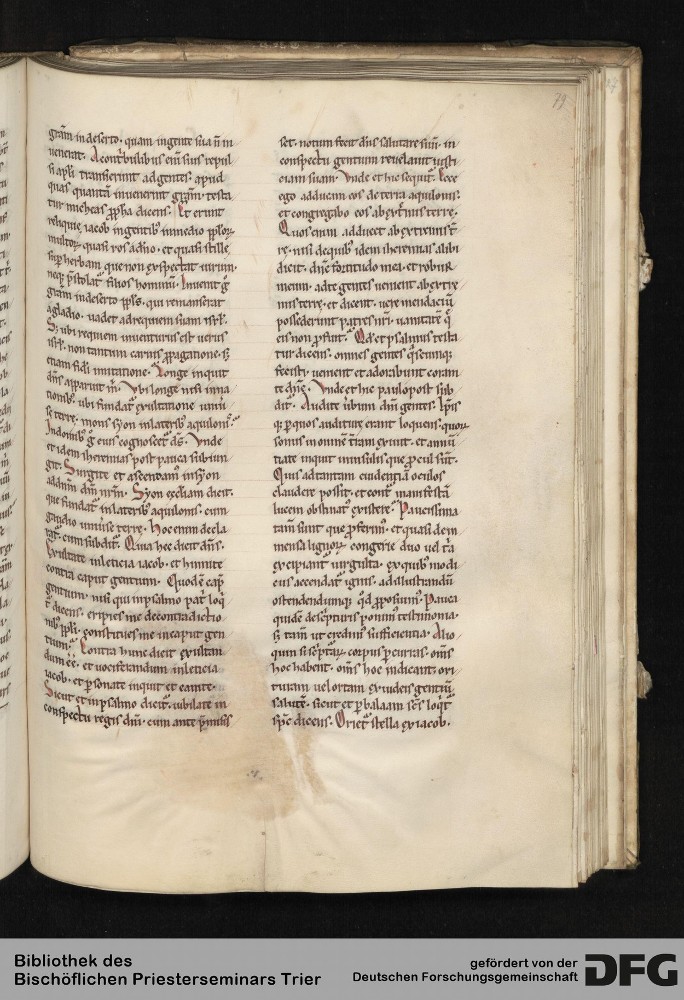 79
gr̄am in deserto. quam ingente sua ñ in
uenerat. A contribulibus enī suis repul
si apl̄i transierunt ad gentes. apud
quas quantā inuenerint gr̄am. testa
tur micheas ꝓpha dicens. Et erunt
reliquie iacob in gentib; in medio pplorꝫ
multorꝫ quasi ros a dn̄o. et quasi stille
sup herbam que non expectat uirum.
neqꝫ p̄stolat᷑ filios hominū. Inuenit g̊
gr̄am in deserto ppl̄s. qui remanserat
a gladio. uadet ad requiem suam isrl̄.
Sꝫ ubi requiem inuenturus est uerus
isrl̄. non tantum carnis ꝓpagatione. sꝫ
etiam fidi imitatione. Longe inquit
dn̄s apparuit m̄. Vbi longe nisi in na
tionib;. ubi fundat᷑ exultatione uniu̅
se terre. mons syon in laterib; aquiloni᷒.
In domib; g̊ eius cognoscet᷑ ds̄. Vnde
et idem iheremias post pauca subiun
git. Surgite et ascendam᷒ in syon
ad dn̄m dm̄ nr̄m. Syon ecc̄liam dicit.
que fundat᷑ in laterib; aquilonis. cum
gaudio uniuse terrę. Hoc enim decla
rat᷑. cum subdit᷑. Quia hec dicit dn̄s.
Exultate in leticia iacob. et hinnite
contra caput gentium. Quod ē cap᷒
gentium. nisi qui in psalmo pat̄ loq̇
t᷑ dicens. eripies me de contradictio
nib; ppl̄i. constitues me in caput gen
tium. Contra hunc dicit exultan
dum ēē. et uociferandum in leticia
iacob. et psonate inquit et canite.
Sicut et in psalmo dicit᷑. iubilate in
conspectu regis dn̄i. cum ante p̄misis
set. notum fecit dn̄s salutare suū. in
conspectu gentium reuelauit iusti
ciam suam. Vnde et hic sequit᷑. Ecce
ego adducam eos de terra aquilonis.
et congregabo eos ab ext̄mis terre.
Quos enim adducet ab extremis t̄
re. nisi de quib; idem iheremias alibi
dicit. dn̄e fortitudo mea. et robur
meum. ad te gentes uenient ab extre
mis terre. et dicent. uere mendaciū
possederunt patres nr̄i. uanitatē q̄
eis non ꝓfuit. Qd̄ et psalmus testa
tur dicens. omnes gentes q̄scumqꝫ
fecisti. uenient et adorabunt coram
te dn̄e. Vnde et hic paulo post sub
dit᷑. Audite uerbum dn̄i gentes. Ipsis
q̇ p quos auditure erant loquens. quorꝫ
sonus in omnē t̄ram exiuit. et annū
tiate inquit in insulis que ꝓcul sunt.
Quis ad tantam euidentiā oculos
claudere possit. et cont᷑ manifestā
lucem obstinat᷒ existere. Paucissima
tam̄ sunt que ꝓferim᷒. et quasi de in
mensa lignorꝫ congerie duo uel t̄a
excipiant᷑ uirgulta. ex quib; modi
cus accendat᷑ ignis. ad illustrandū
ostendendumqꝫ qd̄ ꝓposuim᷒. Pauca
quidē de sc̄pturis ponim᷒ testimonia.
sꝫ tam̄ ut credim᷒ sufficientia. Alio
quin si sc̄pturarꝫ corpus pcurras. om̄s
hoc habent. om̄s hoc indicant. ori
turam uel ortam ex iudeis gentiū
salutē. sicut et p balaam sc̄s loq̇t᷑
sp̄c dicens. Oriet᷑ stella ex iacob.
Bibliothek des
Bischöflichen Priesterseminars Trier
gefördert von der
Deutschen Forschungsgemeinschaft
DFG